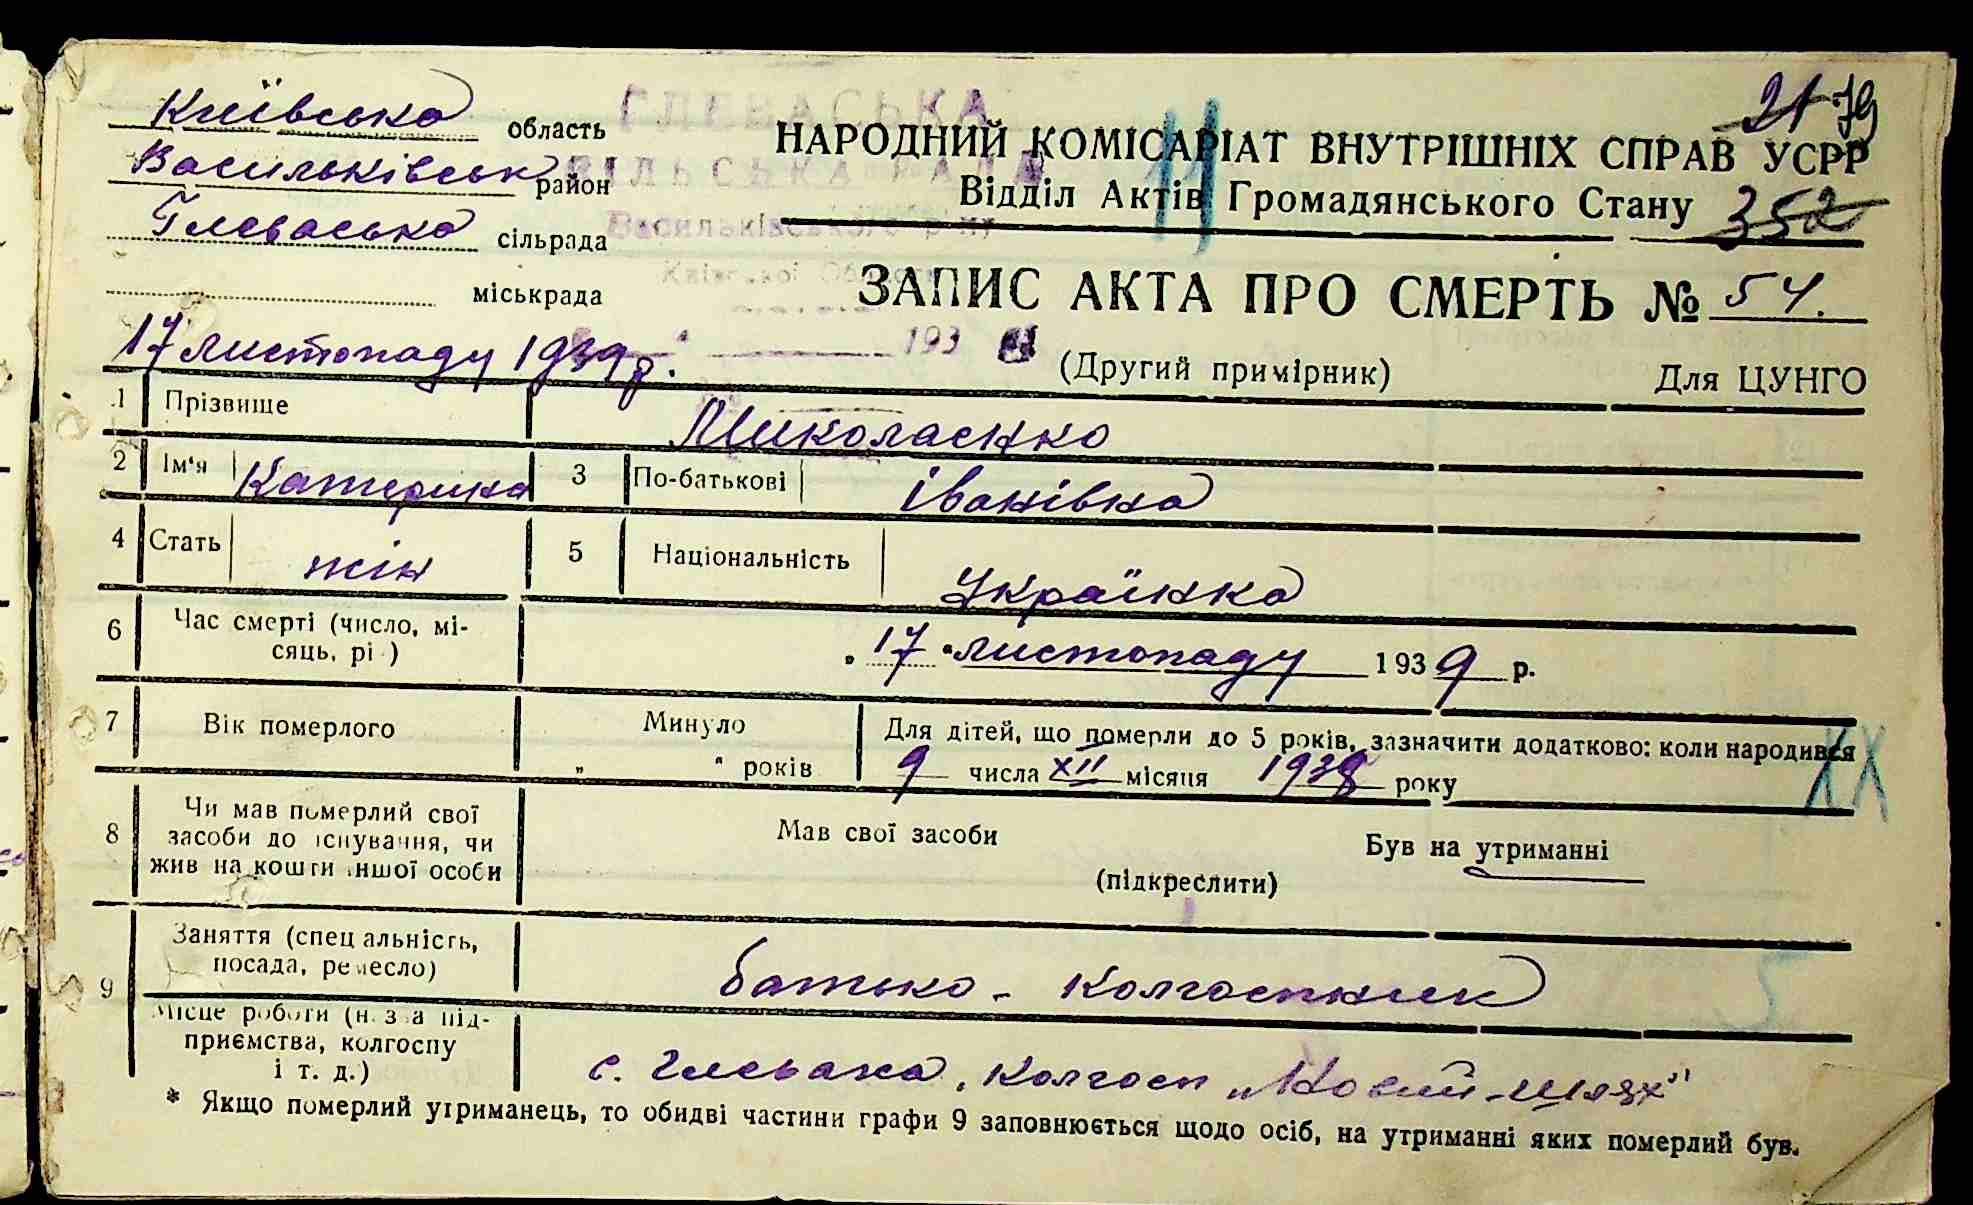 Київська область
Васильківськ район
Глеваська сільрада
міськрада
ГЛЕВАСЬКА
СІЛЬСЬКА РАДА
Васильківського р-ну
Київської Області
193
21 79
НАРОДНИЙ КОМІСАРІАТ ВНУТРІШНІХ СПРАВ УСРР
Відділ Актів Громадянського Стану 352
ЗАПИС АКТА ПРО СМЕРТЬ № 54.
17 листопаду 1939 р.
(Другий примірник) Для ЦУНГО
1 Прізвище Миколаєнко
2 Ім'я Катерина 3 По-батькові Іванівна
4 Стать жін 5 Національність Українка
6 Час смерті (число, мі-
сяць, рі ) „ 17 " листопаду 1939 р.
7 Вік померлого Минуло „ " років
Для дітей, що померли до 5 років, зазначити додатково: коли народився
9 числа XII місяця 1938 року
XX
8 Чи мав померлий свої
засоби до існування, чи
жив на кошти іншої особи
Мав свої засоби Був на утриманні
(підкреслити)
9 Заняття (спеціальність,
посада, ремесло) батько - колгоспник
5
Місце роботи (назва під-
приємства, колгоспу
і т. д.) с. Глеваха, колгосп „Новий-шлях"
* Якщо померлий утриманець, то обидві частини графи 9 заповнюється щодо осіб, на утриманні яких померлий був.